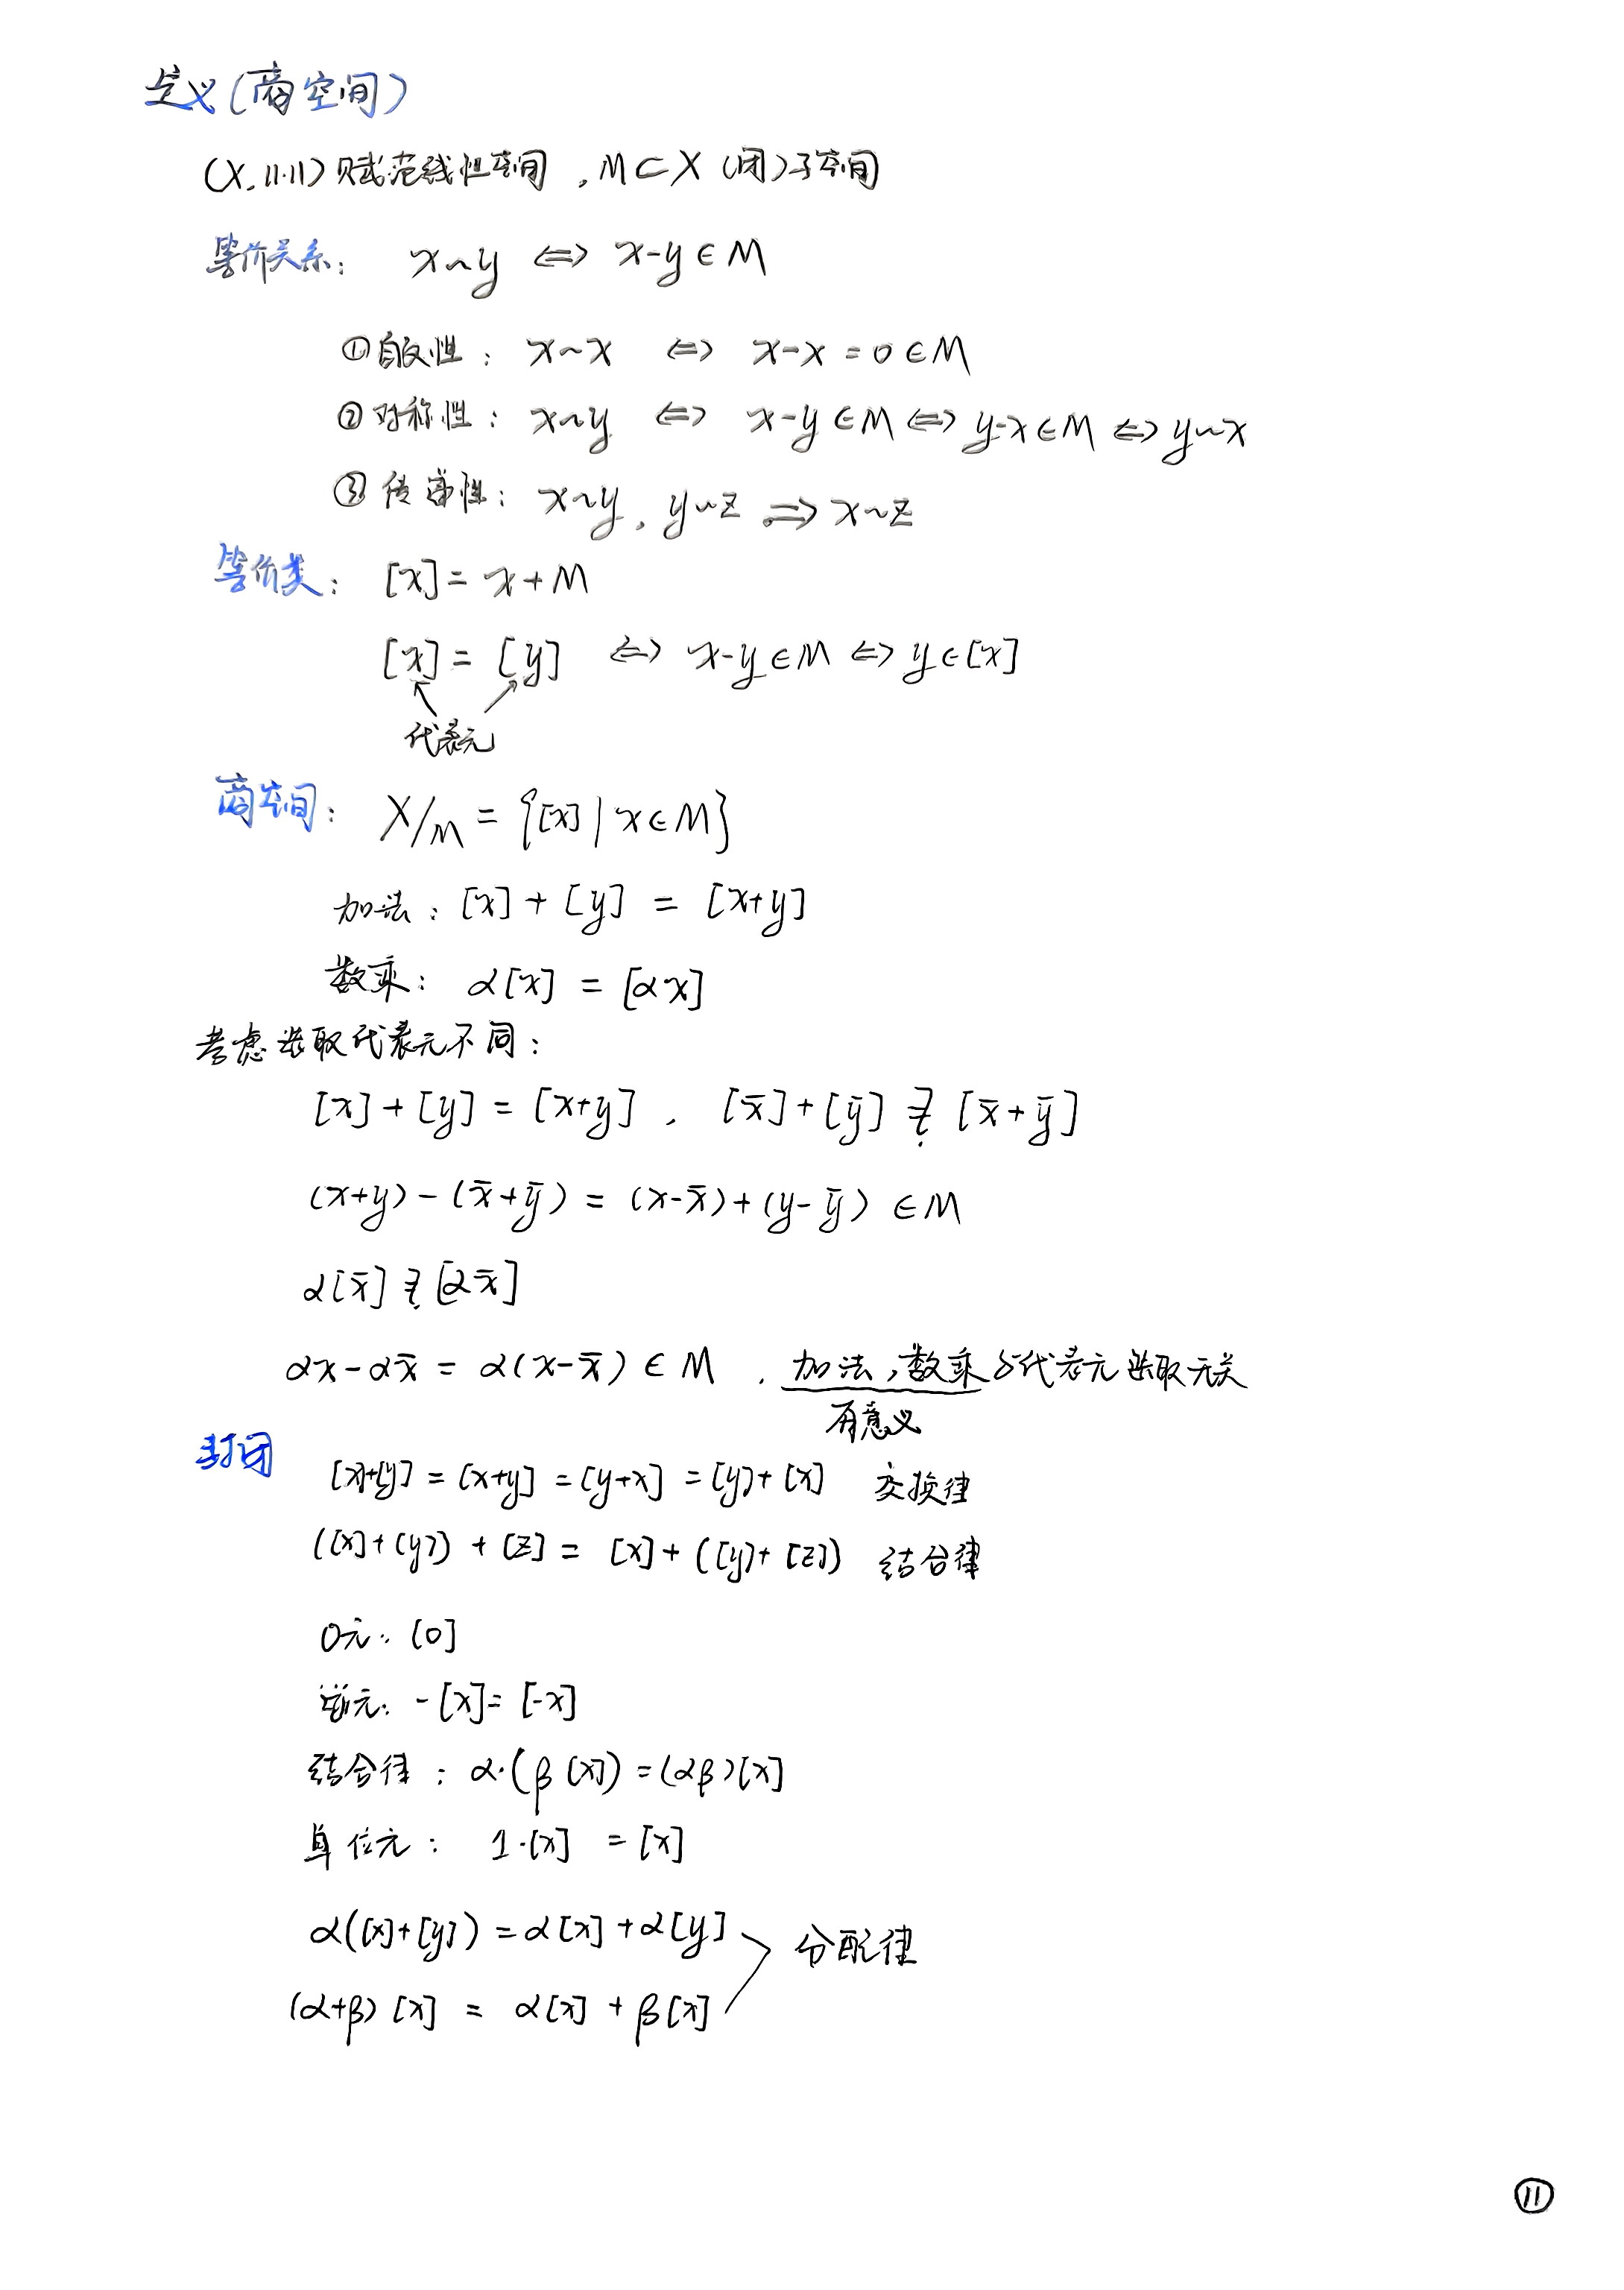 定义(商空间)
(X, ||·||) 赋范线性空间, M⊂X (闭)子空间
等价关系: x~y ⇔ x-y∈M
①自反性: x~x ⇔ x-x=0∈M
②对称性: x~y ⇔ x-y∈M⇔y-x∈M⇔y~x
③传递性: x~y, y~z ⇒ x~z
等价类: [x]=x+M
[x]=[y] ⇔ x-y∈M⇔y∈[x]
代表元
商空间: X/M={[x]|x∈M}
加法: [x]+[y]=[x+y]
数乘: α[x]=[αx]
考虑选取代表元不同:
[x]+[y]=[x+y], [x̄]+[ȳ] ≟ [x̄+ȳ]
(x+y)-(x̄+ȳ)=(x-x̄)+(y-ȳ)∈M
α[x̄] ≟ [αx̄]
αx-αx̄=α(x-x̄)∈M, 加法,数乘与代表元选取无关
有意义
封闭 [x]+[y]=[x+y]=[y+x]=[y]+[x] 交换律
([x]+[y])+[z]=[x]+([y]+[z]) 结合律
0元: [0]
逆元: -[x]=[-x]
结合律: α·(β[x])=(αβ)[x]
单位元: 1·[x]=[x]
α([x]+[y])=α[x]+α[y]
分配律
(α+β)[x]=α[x]+β[x]
⑪